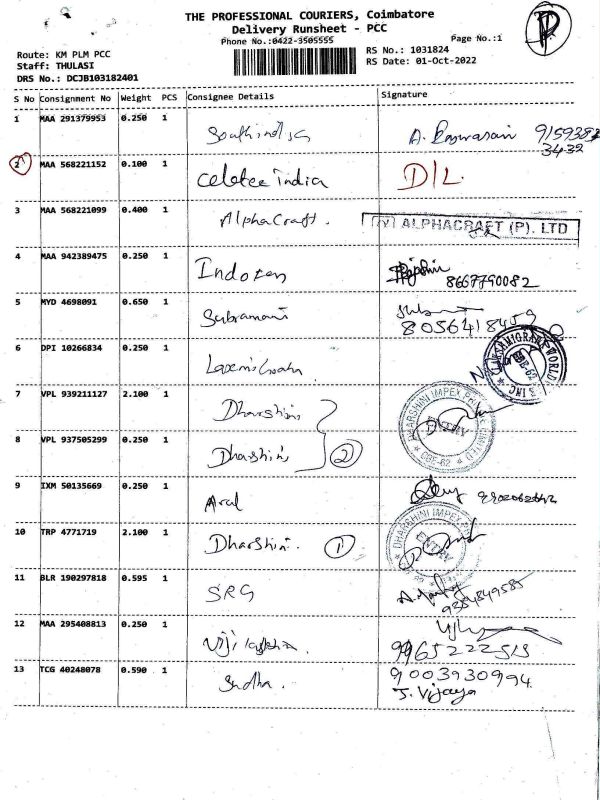 THE PROFESSIONAL COURIERS, Coimbatore
Delivery Runsheet - PCC
Phone No.:0422-3505555 Page No.:1
Route: KM PLM PCC RS No.: 1031824
Staff: THULASI RS Date: 01-Oct-2022
DRS No.: DCJB103182401
S No Consignment No Weight PCS Consignee Details Signature
1 MAA 291379953 0.250 1
2 MAA 568221152 0.100 1 India D/L
3 MAA 568221099 0.400 1 AlphaCraft. ALPHACRAFT (P). LTD
4 MAA 942389475 0.250 1 8667790082
5 MYD 4698091 0.650 1 Subramani 8056418459
6 DPI 10266834 0.250 1
7 VPL 939211127 2.100 1 Dharshini DHARSHINI IMPEX PRIVATE LIMITED ENTRY CBE-62
8 VPL 937505299 0.250 1 Dharshini 2
9 IXM 50135669 0.250 1 Arul
10 TRP 4771719 2.100 1 Dharshini. 1 DHARSHINI IMPEX ENTRY
11 BLR 190297818 0.595 1 SRG
12 MAA 295408813 0.250 1
13 TCG 40248078 0.590 1 Sudha. 9003930994
J. Vijaya